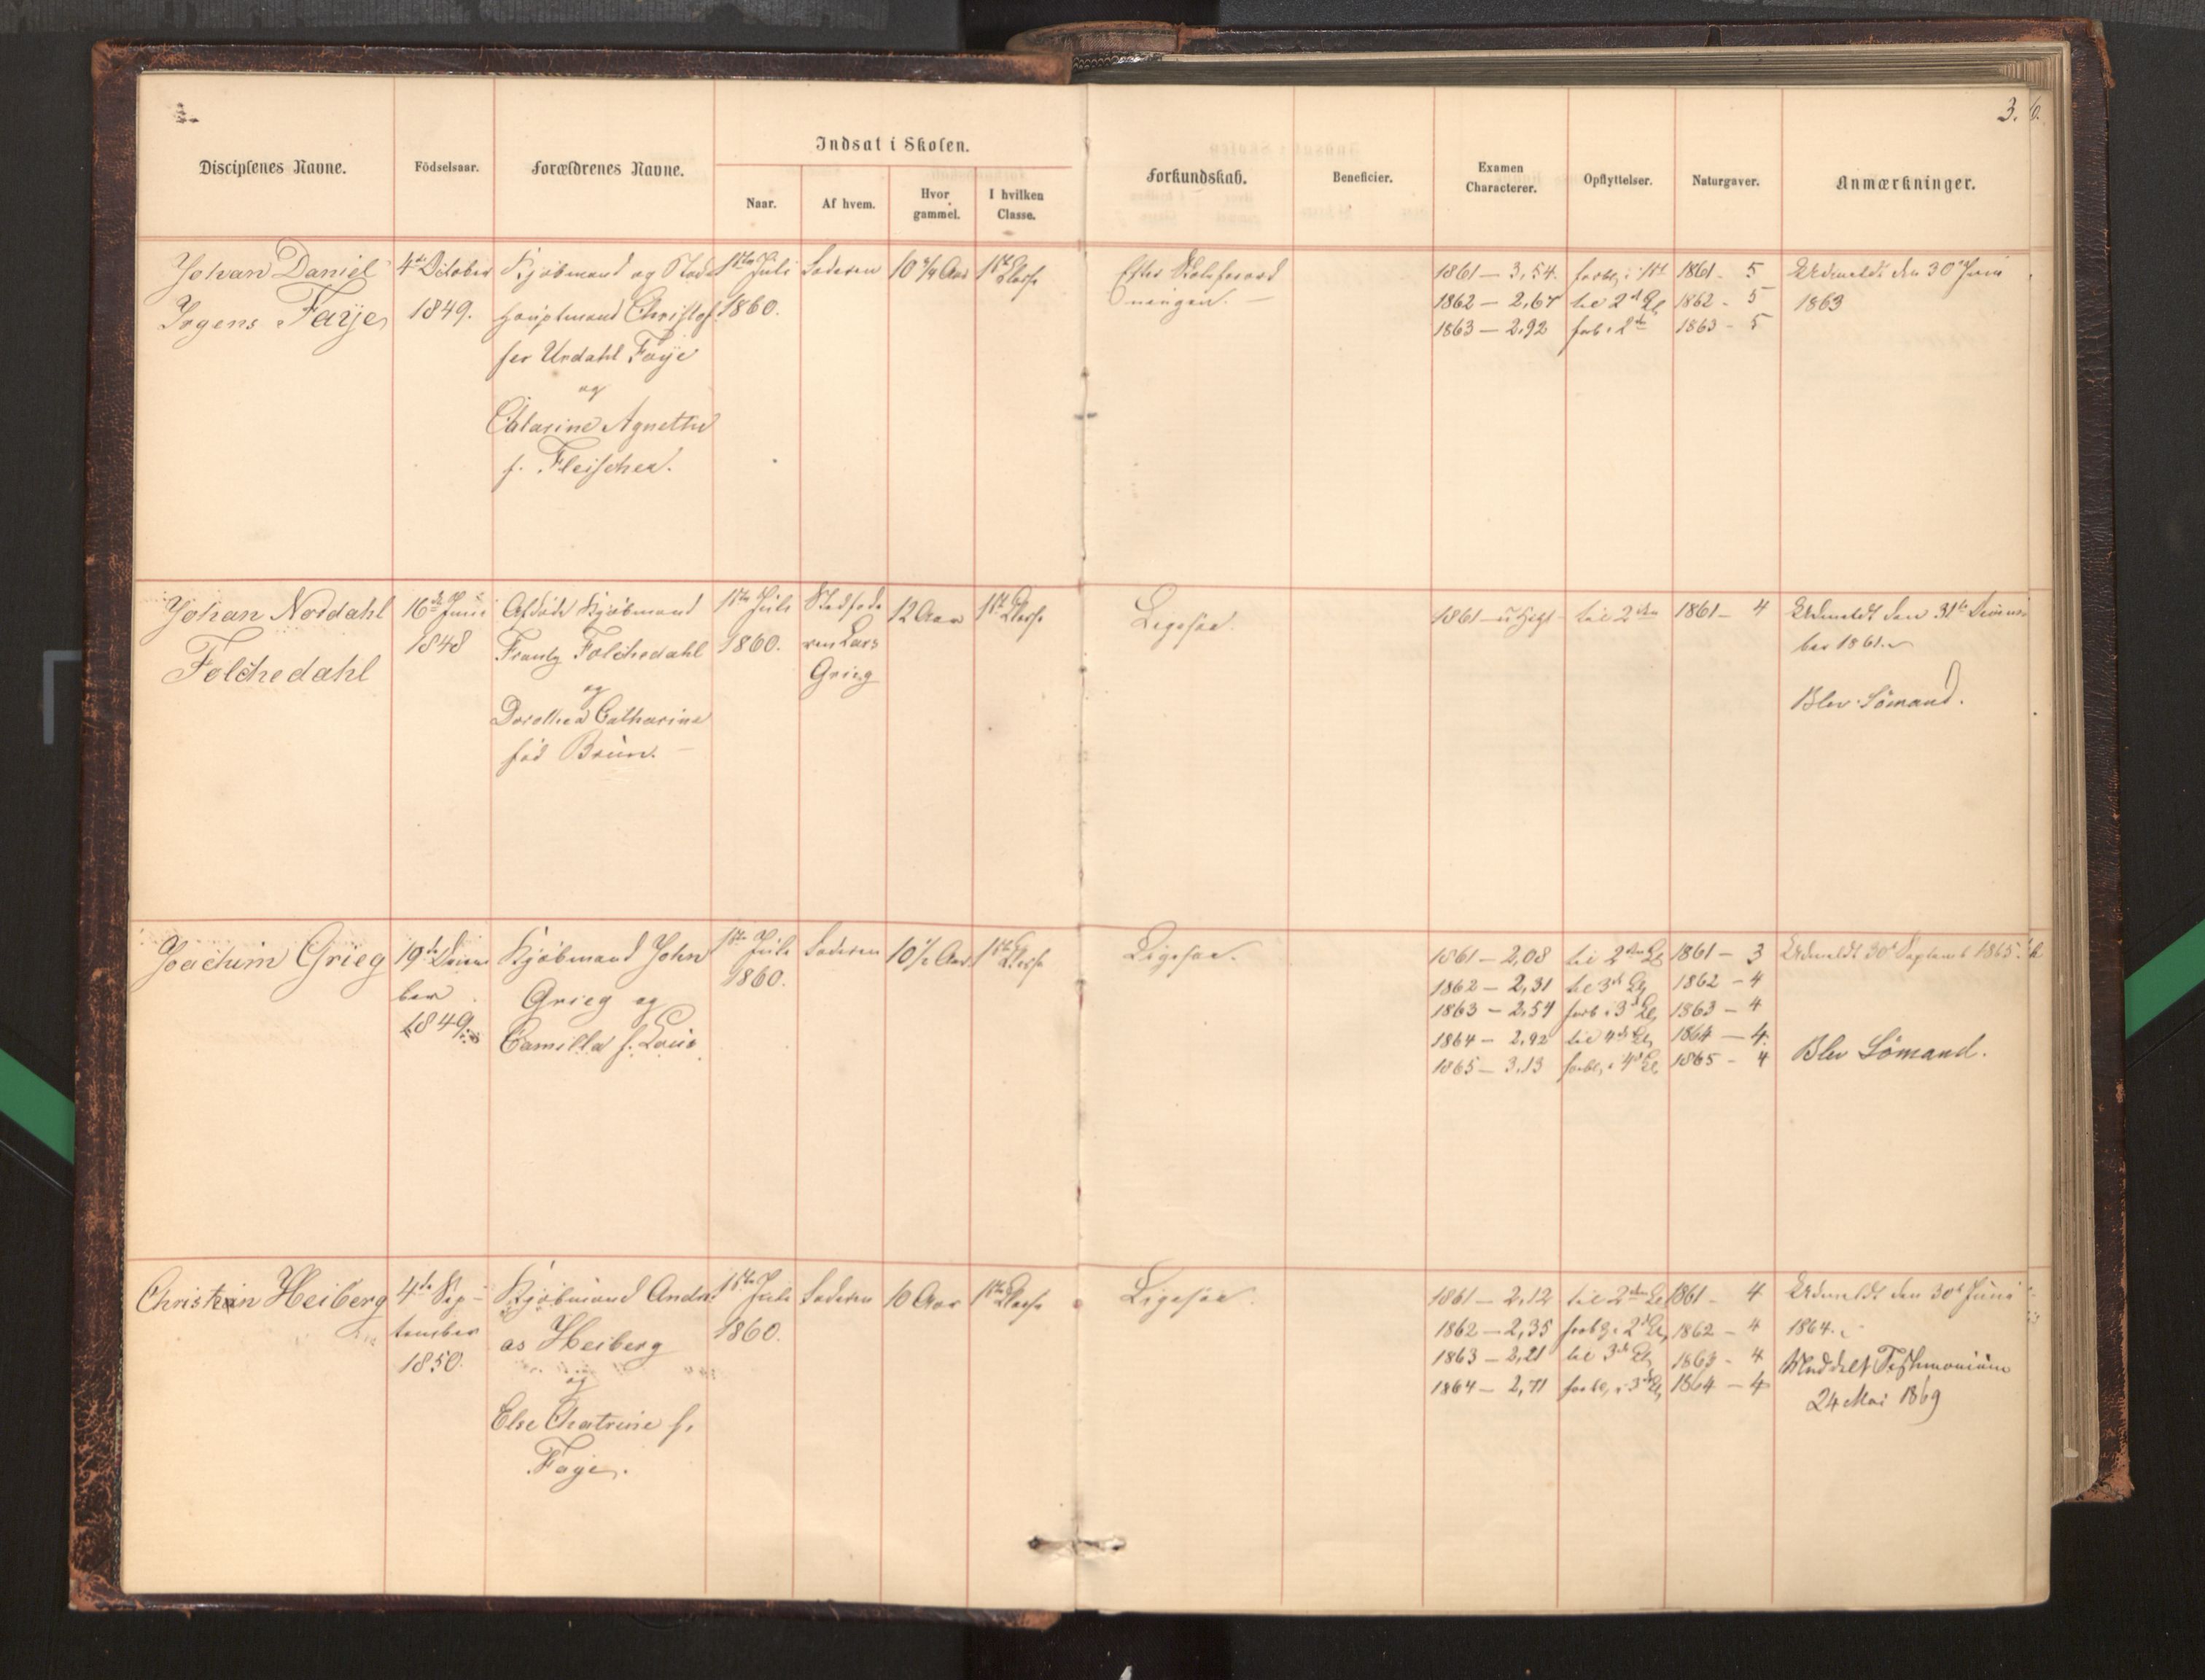 3.
Disciplenes Navne.
Födselsaar.
Forældrenes Navne.
Indsat i Skolen.
Naar.
Af hvem.
Hvor gammel.
I hvilken Classe.
Forkundskab.
Beneficier.
Examen Characterer.
Opflyttelser.
Naturgaver.
Anmærkninger.
Johan Daniel
Irgens Faye
4de October
1849.
Kjøbmand og Stads
hauptmand Christof
fer Undahl Faÿe
og
Catarine Agnethe
f. Fleischer.
1ste Juli
1860.
Faderen
10 3/4 Aar
1ste Classe
Efter Skoleforord
ningen.
1861 – 3,54.
1862 – 2,67
1863 – 2,92
forbl. i 1ste
til 2d Cl.
forb. i 2de
1861 - 5
1862 - 5
1863 - 5
Udmeldt den 30 Juni
1863
Johan Nordahl
Folchedahl
16de Juni
1848
Afdøde Kjøbmand
Frantz Folchedahl
og
Dorothea Catharine
fød Bruun.
1ste Juli
1860.
Stedfade
ren Lars
Grieg
12 Aar
1ste Classe
Ligesaa.
1861
til 2den
1861 – 4
Udmeldt den 31te Decem
ber 1861.
Blev Sömand.
Joachim Grieg
19de Decem
ber
1849.
Kjøbmand John
Grieg og
Camilla f.
1ste Juli
1860.
Faderen
10 1/2 Aar
1ste Classe
Ligesaa.
1861 – 2,08
1862 – 2,31
1863 – 2,54
1864 – 2,92
1865 – 3,13
til 2den Cl.
til 3de Cl.
forb. i 3d Cl.
til 4de Cl.
forbl. i 4d Cl.
1861 – 3
1862 – 4
1863 – 4
1864 – 4.
1865 - 4
Udmeldt 30te Septemb 1865.
Blev Sömand.
Christian Heiberg
4de Sep
tember
1850.
Kjøbmand Andre
as Heiberg
og
Else Chatrine f.
Faye.
1ste Juli
1860.
Faderen
10 Aar
1ste Classe
Ligesaa.
1861 – 2,12
1862 – 2,35
1863 – 2,21
1864 – 2,71
til 2den Cl.
forbl. i 2d Cl.
til 3de Cl.
forbl. i 3d Cl.
1861 - 4
1862 – 4
1863 - 4
1864 – 4
Udmeldt den 30te Juni
1864.
Meddelt Testimonium
24 Mai 1869